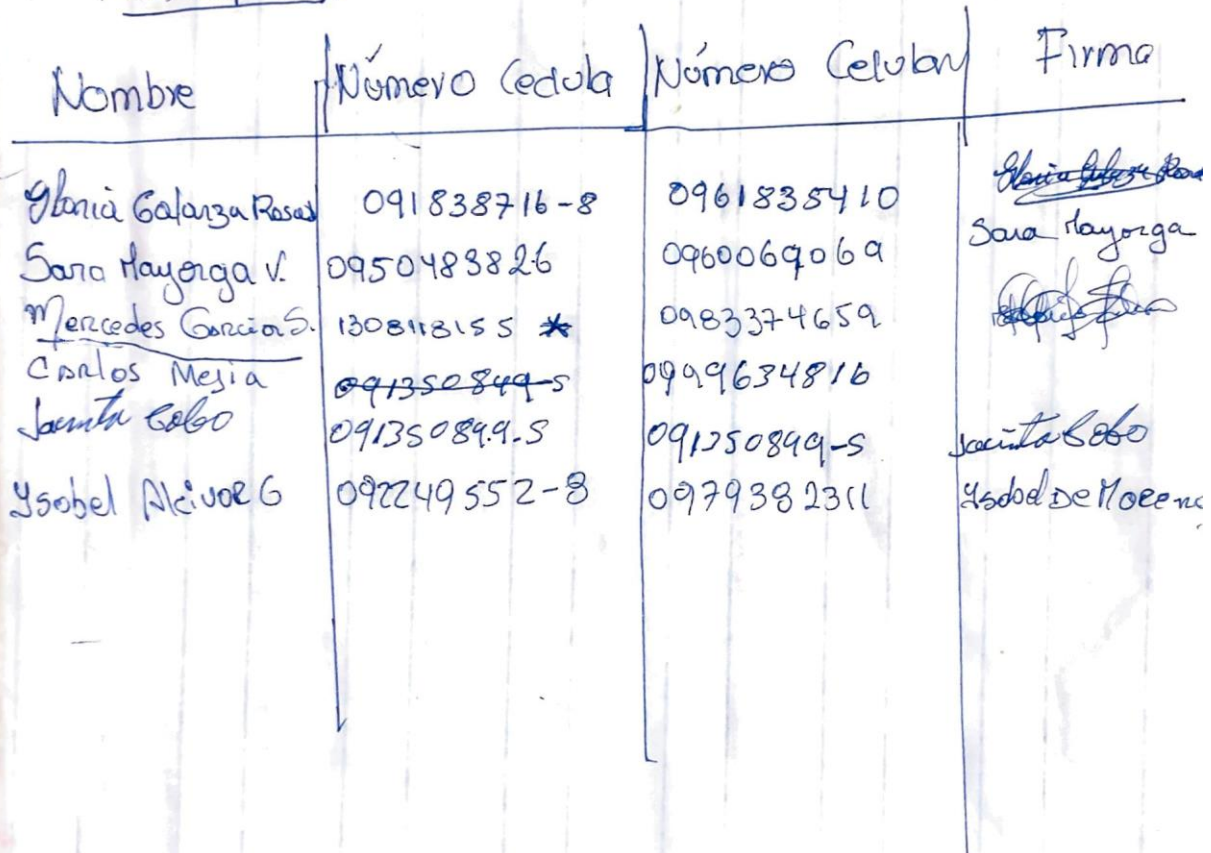 Nombre Número Cedula Número Celular Firma
Gloria Galarza Rosas 091838716-8 0961835410 Gloria Galarza Rosas
Sara Mayorga V. 0950483826 0960069069 Sara Mayorga
Mercedes Garcia S. 1308118155 * 0983374659
Carlos Mejia 091350849-5 0999634816
Jacinta Cobo 091350849-5 091350849-5 Jacinta Cobo
Ysabel Alcivar G 092249552-8 0979382311 Ysabel De Moreno